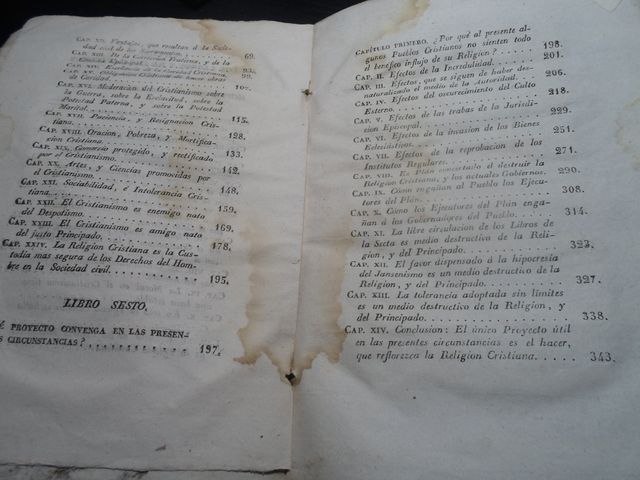 CAP. XII. Ventajas, que resultan á la Socie-
dad civil de los Sacramentos. . . . . . 69.
CAP. XIII. De la Correccion Fraterna, y de la
93.
CAP. XIV.
99.
CAP. XV. Obligacion Cristiana
de Caridad. . . . . . . . . . 102.
CAP. XVI. Moderacion del Cristianismo sobre
la Guerra, sobre la Esclavitud, sobre la
Potestad Paterna, y sobre la Potestad
Marital. . . . . . . . . . 115.
CAP. XVII. Paciencia, y Resignacion Cris-
tiana. . . . . . . . . . 128.
CAP. XVIII. Oracion, Pobreza, y Mortifica-
cion Cristiana. . . . . . . . . 133.
CAP. XIX. Comercio protegido, y rectificado
por el Cristianismo. . . . . . . . 142.
CAP. XX. Artes, y Ciencias promovidas por
el Cristianismo. . . . . . . . . 148.
CAP. XXI. Sociabilidad, é Intolerancia Cris-
tiana. . . . . . . . . . 159.
CAP. XXII. El Cristianismo es enemigo nato
del Despotismo. . . . . . . . . 169.
CAP. XXIII. El Cristianismo es amigo nato
del justo Principado. . . . . . . . 178.
CAP. XXIV. La Religion Cristiana es la Cus-
todia mas segura de los Derechos del Hom-
bre en la Sociedad civil. . . . . . . 195.
LIBRO SESTO.
É PROYECTO CONVENGA EN LAS PRESEN-
S CIRCUNSTANCIAS? . . . . . . . 197.
CAPÍTULO PRIMERO. ¿Por qué al presente al-
gunos Pueblos Cristianos no sienten todo
el benéfico influjo de su Religion? . . . . 198.
CAP. II. Efectos de la Incredulidad. . . . . 201.
CAP. III. Efectos, que se siguen de haber des-
naturalizado el medio de la Autoridad. . . 206.
CAP. IV. Efectos del oscurecimiento del Culto
Esterno. . . . . . . . . . 218.
CAP. V. Efectos de las trabas de la Jurisdic-
cion Episcopal. . . . . . . . . 229.
CAP. VI. Efectos de la invasion de los Bienes
Eclesiásticos. . . . . . . . . . 251.
CAP. VII. Efectos de la reprobacion de los
Institutos Regulares. . . . . . . . 271.
CAP. VIII. Es Plan concertado el destruir la
Religion Cristiana, y los actuales Gobiernos. 290.
CAP. IX. Cómo engañan al Pueblo los Ejecu-
tores del Plan. . . . . . . . . 308.
CAP. X. Cómo los Ejecutores del Plan enga-
ñan á los Gobernadores del Pueblo. . . . 314.
CAP. XI. La libre circulacion de los Libros de
la Secta es medio destructivo de la Reli-
gion, y del Principado. . . . . . . 323.
CAP. XII. El favor dispensado á la hipocresía
del Jansenismo es un medio destructivo de la
Religion, y del Principado. . . . . . 327.
CAP. XIII. La tolerancia adoptada sin límites
es un medio destructivo de la Religion, y
del Principado. . . . . . . . . 338.
CAP. XIV. Conclusion: El único Proyecto útil
en las presentes circunstancias es el hacer,
que reflorezca la Religion Cristiana. . . . 343.